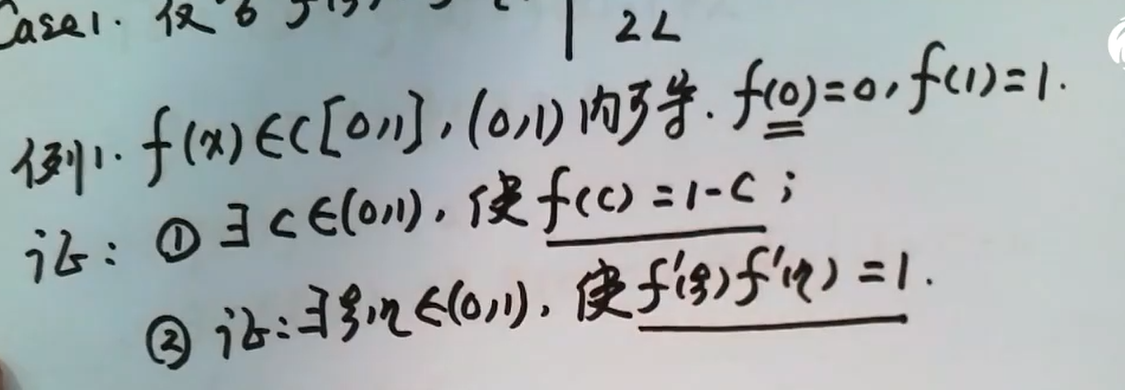 Case1. 仅
2L
例1. f(x)∈C[0,1], (0,1)内可导. f(0)=0, f(1)=1.
证: ① ∃ c∈(0,1), 使 f(c)=1-c;
② 证:∃ξ,η∈(0,1), 使 f'(ξ)f'(η)=1.